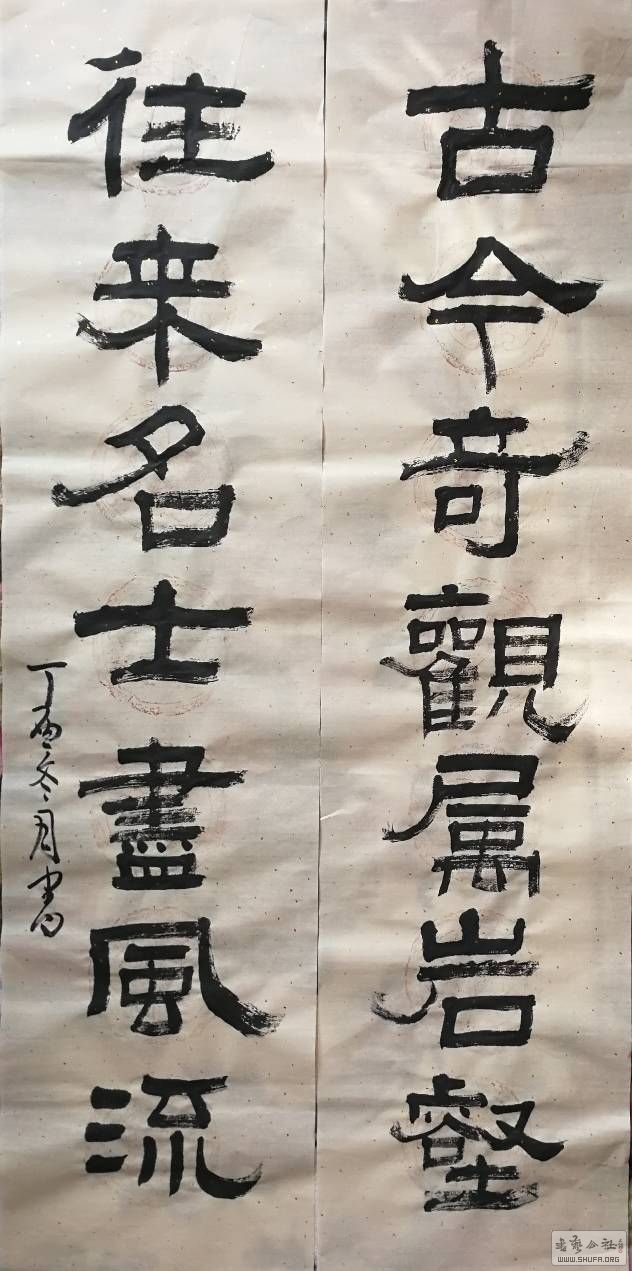 古今奇觀属岩壑
往来名士盡風流
丁酉冬月書
WWW.SHUFA.ORG